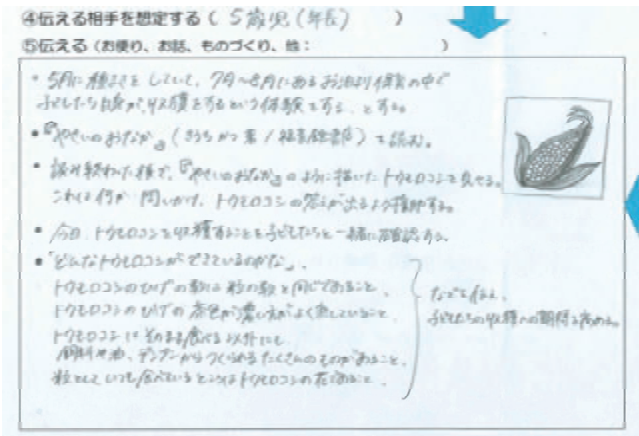 ④伝える相手を想定する（ 5歳児（年長） ）
⑤伝える（お便り、お話、ものづくり、他： ）
・5月に種まきをしていて、7月〜8月にあるお泊り保育の中で
子どもたち自身が、収穫をするという体験をする、とする。
・『やさいのおなか』（きうちかつ 著／福音館書店）を読む。
・読み終わった後で、『やさいのおなか』のように描いたトウモロコシを見せる。
これは何か 問いかけ、トウモロコシの答えが出るよう援助する。
・今日、トウモロコシを収穫することを子どもたちと一緒に確認する。
・「どんなトウモロコシができているのかな」、
トウモロコシのひげの数は粒の数と同じであること、
トウモロコシのひげの茶色が濃い方がよく熟していること、
トウモロコシはそのまま食べる以外にも
飼料や油、デンプンからつくられるたくさんのものがあること、
粒としていつも食べているところはトウモロコシの
などを伝え、
子どもたちの収穫への期待を高める。